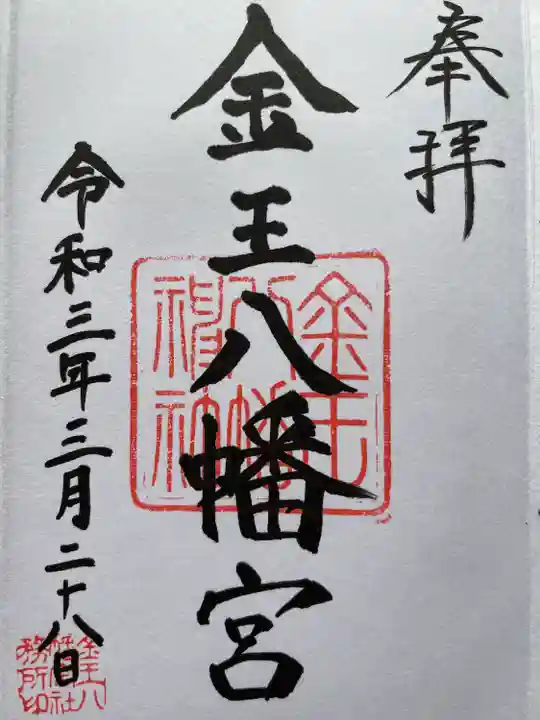 奉拝
金王八幡宮
令和三年三月二十八日
金王八幡神社
金王八幡神社務所印